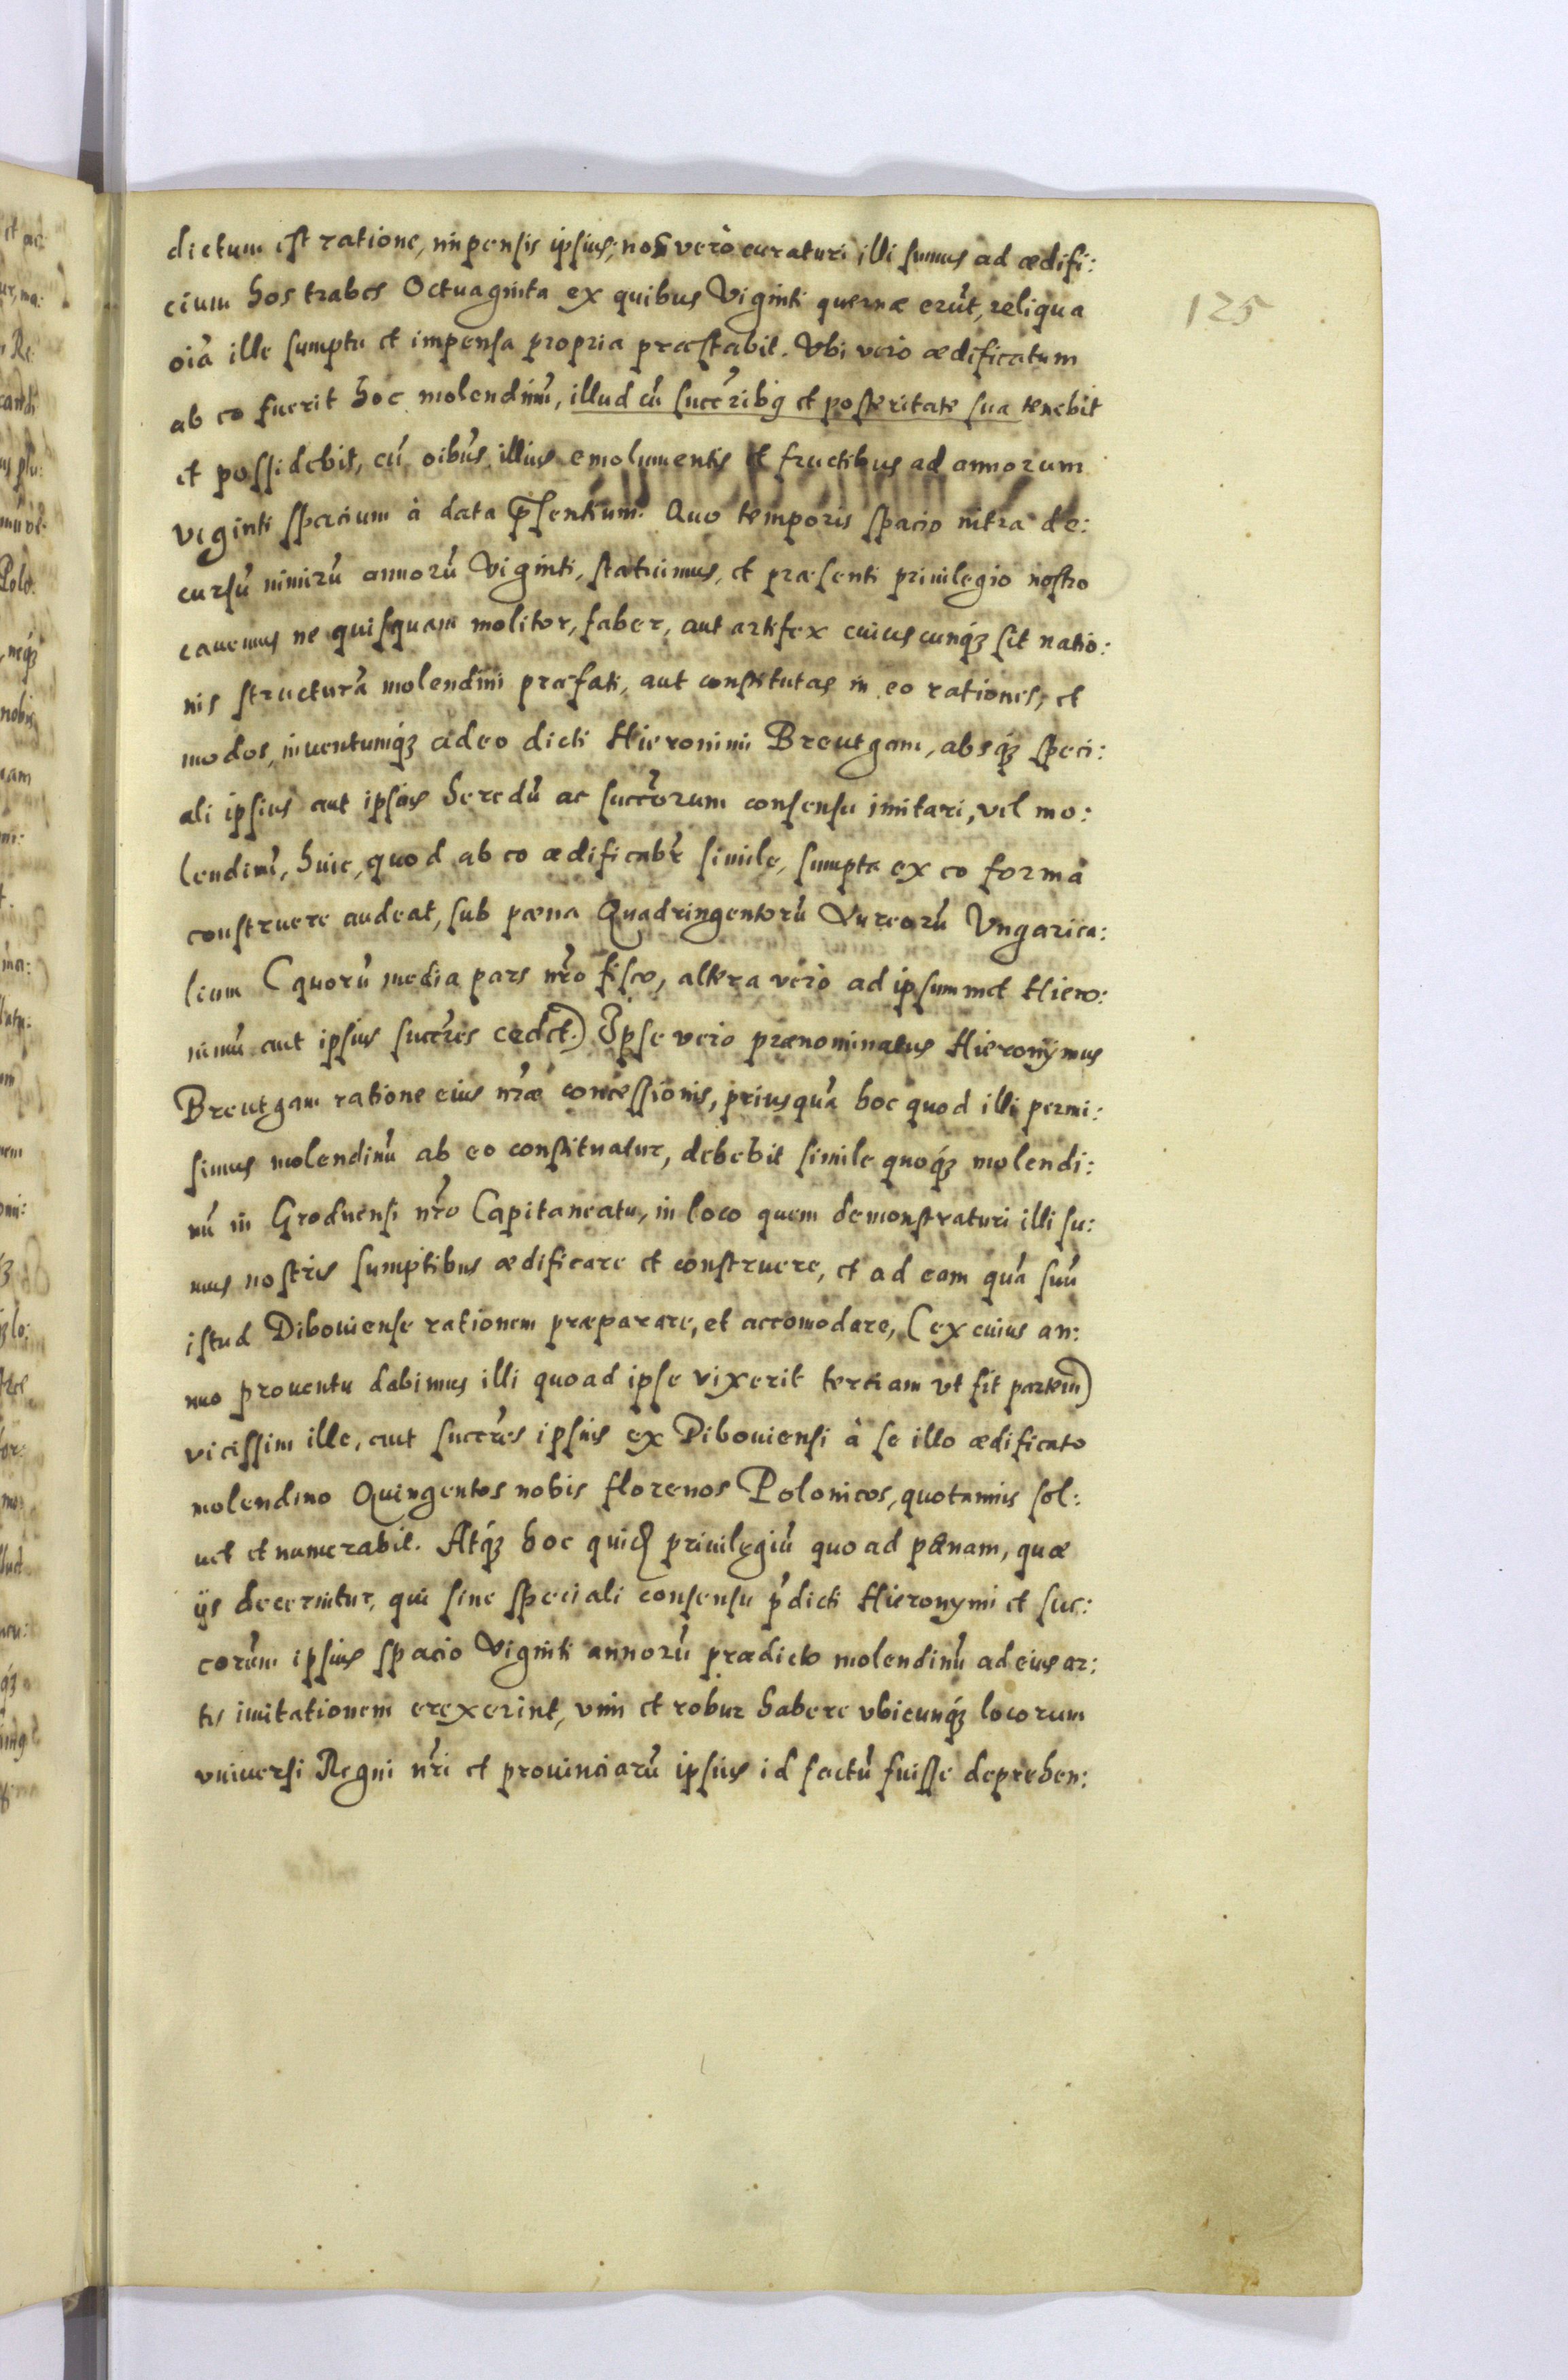 dictum est ratione, impensis ipsius, nos verò curaturi illi sumus ad ædifi:
cium hos trabes Octuaginta ex quibus Viginti quernæ erūt, reliqua
oiā ille sumptu et impensa propria præstabit. Vbi vero ædificatum
ab eo fuerit hoc molendinū, illud cū succr̄ibq et posteritate sua tenebit
et possidebit, cū oibus illius emolumentis et fructibus ad annorum
viginti spacium à data p̄sentium. Quo temporis spacio intra de:
cursū nimirū annorū Viginti, statuimus, et præsenti priuilegio nostro
cauemus ne quisquam molitor, faber, aut artifex cuiuscunqȝ sit natio:
nis structurā molendini præfati, aut constitutas in eo rationes, et
modos, inuentumqȝ adeo dicti Hieronimi Breutgam, absqȝ speci:
ali ipsius aut ipsius heredū ac succr̄orum consensu imitari, vel mo:
lendinū, huic, quod ab eo ædificabr̄ simile, sumpta ex eo forma
construere audeat, sub pæna Quadringentorū Aureorū Vngarica:
lium (quorū media pars nr̄o fisco, altera verò ad ipsummet Hiero:
nimū aut ipsius succr̄es cedet.) Ipse vero prænominatus Hieronymus
Breutgam ratione eius nr̄æ concessionis, priusquā hoc quod illi permi:
simus molendinū ab eo constituatur, debebit simile quoqȝ molendi:
nū in Grodnensi nr̄o Capitaneatu, in loco quem demonstraturi illi su:
mus nostris sumptibus ædificare et construere, et ad eam quā suū
istud Dibouiense rationem præparare, et accomodare, (ex cuius an:
nuo prouentu dabimus illi quoad ipse vixerit tertiam vt fit partem)
vicissim ille, aut succr̄es ipsius ex Dibouiensi à se illo ædificato
molendino Quingentos nobis florenos Polonicos, quotannis sol:
uet et numerabit. Atqȝ hoc quid priuilegiū quo ad pænam, quæ
ijs decernitur, qui sine speciali consensu p̄dicti Hieronymi et suc:
corūm ipsius spacio Viginti annorū prædicto molendinū ad eius ar:
tis imitationem erexerint, vim et robur habere vbicunqȝ locorum
vniuersi Regni nr̄i et prouinciarū ipsius id factū fuisse deprehen:
125